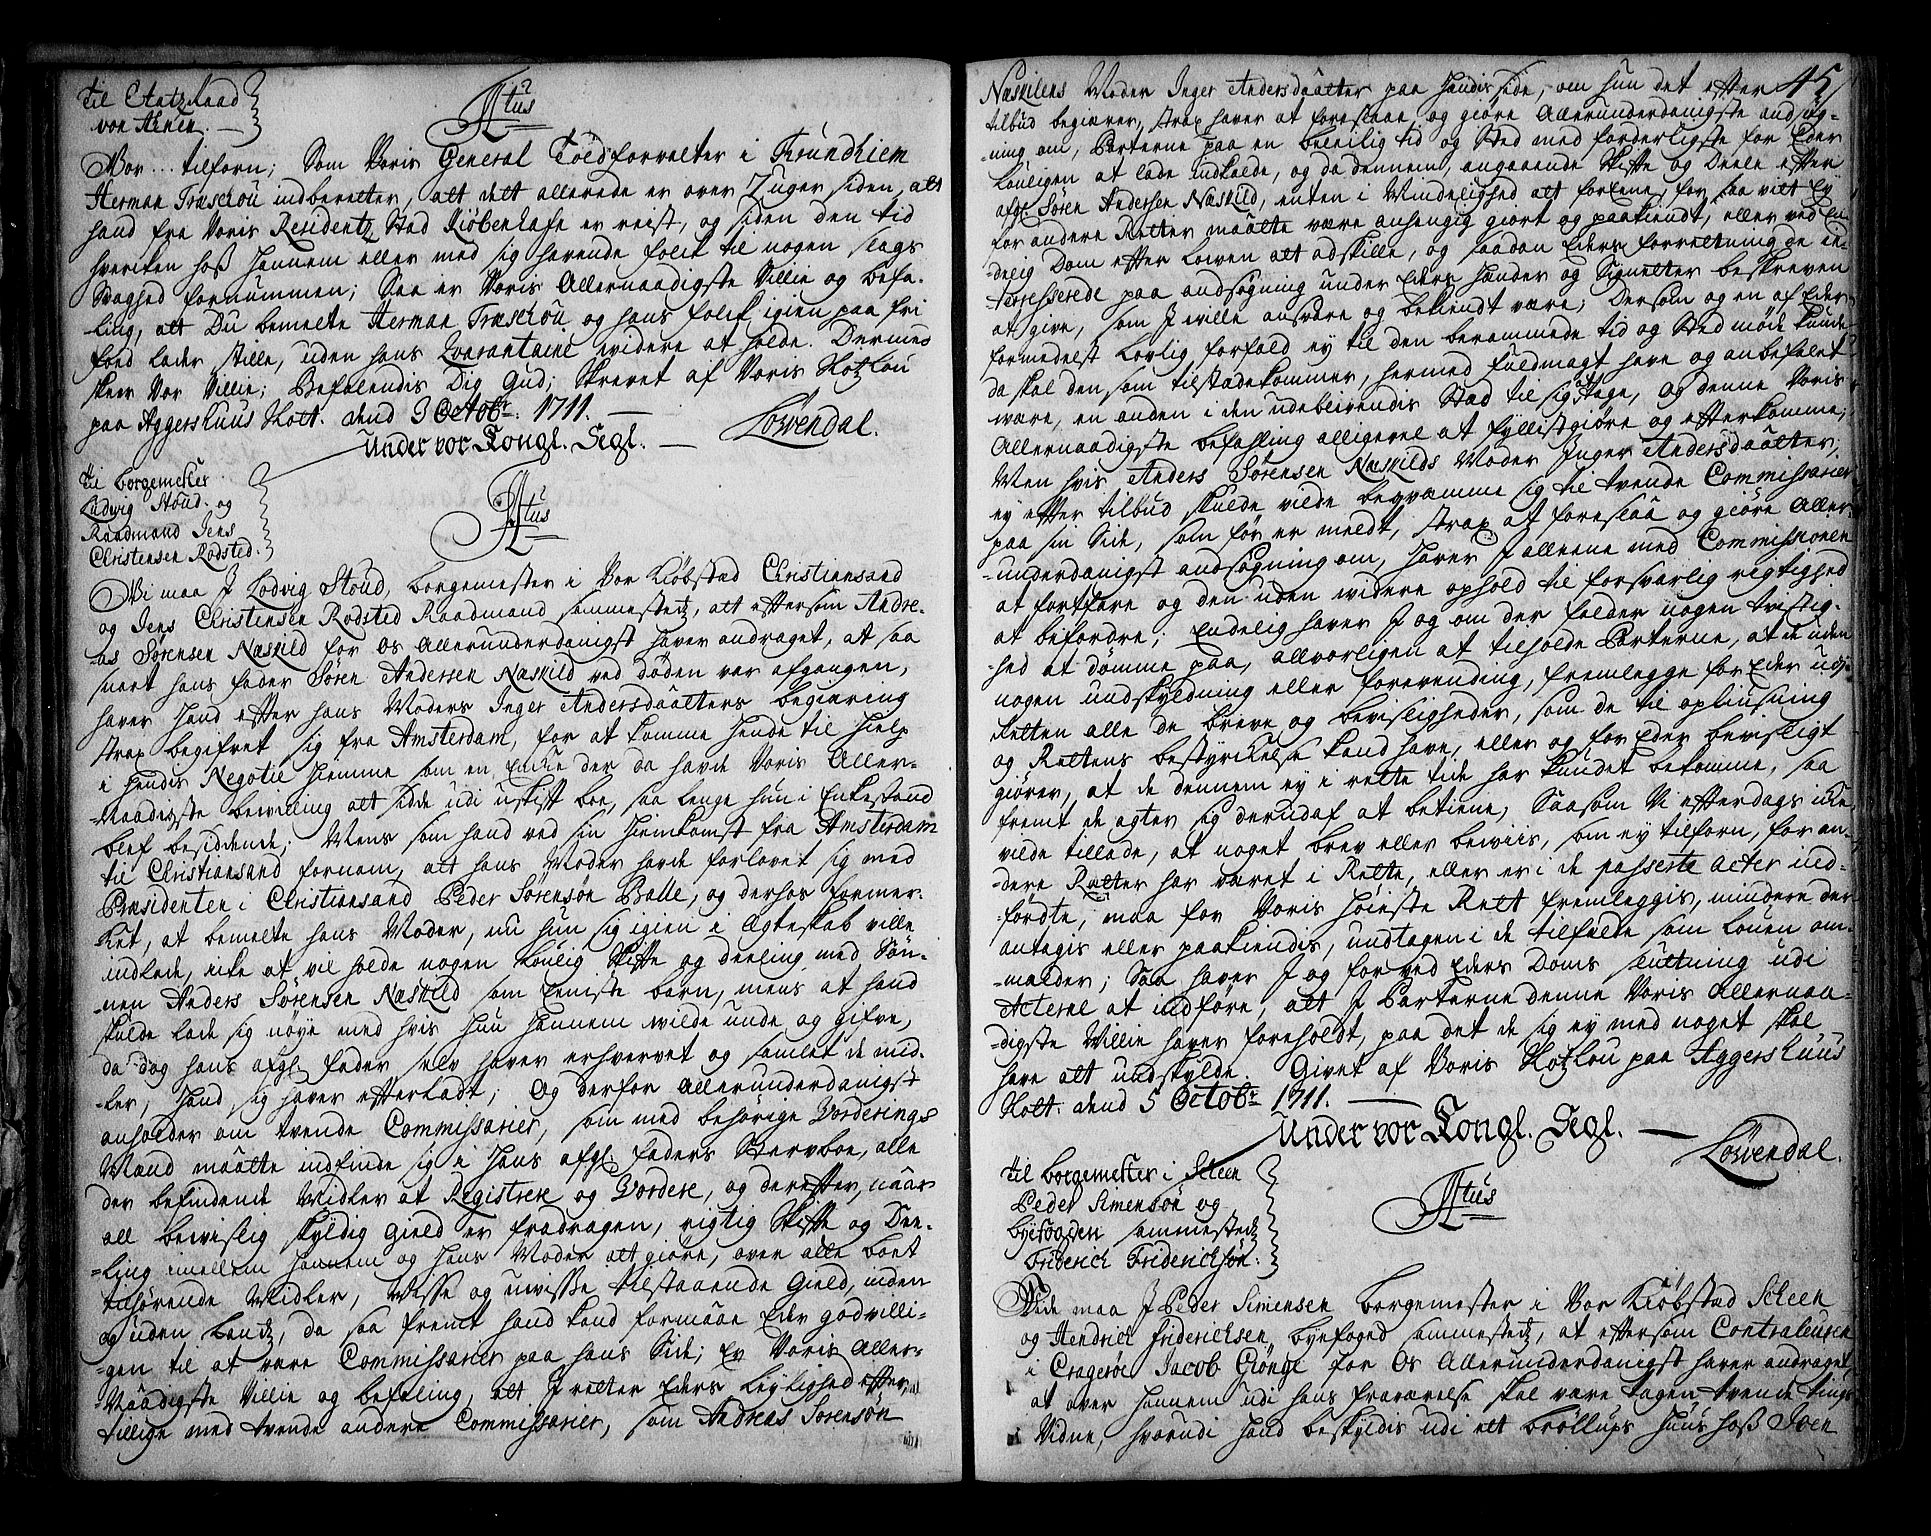 til Etatzraad
von Ahnen.
Atus
Vor... tilforn; Som Voris General Toldforvalter i Trundhiem
Herman Træschou indberetter, att dett allerede er over 7 uger siden, att
hand fra Voris Residentz Stad Kiöbenhafn er reist, og siden den tid
hverken hoß hannem eller med sig havende folk til nogen slags
Svaghed fornummen; Saa er Voris Allernaadigste Villie og befa-
ling, att Du bemelte Herman Træschou og hans folk igien paa fri
foed lader stille, uden hans Qvarantaine widere at holde. Dermed
skeer Vor Villie; Befalendis Dig Gud; Skrevet af Voris Slotzlou
paa Aggershuus Slott. dend 3 Octobr. 1711.
Under vor Kongl. Segl.
Løvendal.
til borgemester
Ludvig Stoud. og
Raadmand Jens
Christensen Rodsted.
Atus
Vi maa J Lodvig Stoud, borgemester i Vor Kiöbstad Christiansand
og Jens Christensen Rodsted Raadmand sammestedz, att eftersom Andre-
as Sørensen Næskild for os Allerunderdanigst haver andraget, at saa
snart hans fader Søren Andersen Næskild ved døden var afgangen,
haver hand efter hans Moders Inger Andersdaatters begiæring
strax begifvet sig fra Amsterdam, for at komme hende til hielp
i hendis Negotie hiemme som en Enke der da havde Voris Aller-
naadigste bevilning att sidde udi uskift boe, saa lenge hun i Enkestand
blef besiddende; Mens som hand ved sin hiemkomst fra Amsterdam
til Christiansand fornam, att hans Moder havde forlovet sig med
Præsidenten i Christiansand Peder Sørensøn Balle, og derhos former-
ket, at bemelte hans Moder, nu hun sig igien i Ægteskab ville
indlade, icke at vil holde nogen louglig skifte og deeling med Søn-
nen Anders Sørensen Næskild som Eeniste barn, mens at hand
skulde lade sig nøye med hvis hun hannem wilde unde og gifve,
da dog hans afgl. fader selv haver erhvervet og samlet de mid-
ler, hand sig haver efterladt; Og derfor allerunderdanigst
anholder om tvende Commissarier, som med behörige Vorderings
Mænd maatte indfinde sig i hans afgl. faders Stervboe, alle
der befindende Midler at Registrere og Vordere, og derefter, naar
all bevislig skyldig Gield er fradragen, rigtig Skifte og Dee-
ling imellem hannem og hans Moder att giøre, over alle boet
tilhørende Midler, Visse og uvisse tilstaaende Gield, inden
og uden landz, da saa fremt hand kand formaae Eder godvilli-
gen til at være Commissarier paa hans Side; Er Voris Aller-
Naadigste Villie og befaling, att J retter Eders leylighed efter
tillige med tvende andre Commissarier, som Andreas Sørensøn
45
Næskilens Moder Inger Andersdaatter paa hendis side, om hun det efter
tilbud begiærer, strax haver at foreslaae, og giøre Allerunderdanigste andsøg-
ning om, Parterne paa en beleilig tid og Sted med forderligste for Eder
louligen at lade indkalde, og da dennem, angaaende Skifte og Deele efter
afgl. Søren Andersen Næskild, enten i Mindelighed att foreene, for saa vit Ey
for andre Retter maatte være anhengig giort og paakiendt, eller ved En-
delig Dom efter Lowen att adskille, og saadan Eders forretning de in-
teresserede paa andsögning under Eders hænder og Signetter beskreven
at give, som J wille ansvare og bekiendt være; Dersom og en af Eder
formedelst Lovlig forfald ey til den berammede tid og Sted møde kunde
da skal den, som tilstædekommer, hermed fuldmagt have og anbefalet
være, en anden i den udeblivendis Stad til sig at tage, og denne Voris
Allernaadigste befahling alligevel at fyllistgiøre og efterkomme;
Men hvis Anders Sørensen Næskilds Moder Inger Andersdaatter,
ey efter tilbud skulde vilde beqvemme sig til tvende Commissarier
paa sin Side, som før er meldt, strax at foreslaa og giøre Aller-
underdanigst andsøgning om, haver J alleene med Commissionen
at fortfare og den uden widere ophold til forsvarlig rigtighed
at befordre; Endelig haver J og om der falder nogen tvistig-
hed at dømme paa, allvorligen at tilholde Parterne, at de uden
nogen undskyldning eller forevending, fremlegge for Eder udi
Retten alle de breve og bevisligheder, som de til oplysning
og Rettens bestyrkelse kand have, eller og for Eder bevisligt
giører, at de dennem ey i rette tide har kundet bekomme, saa
fremt de agter sig derudaf at betiene, Saasom Vi efterdags icke
vilde tillade, at noget brev eller beviis, som ey tilforn, for an-
dere Retter har været i Rette, eller er i de passerte acter ind-
fördte, maa for Voris Høieste Rett fremleggis, mindere der
antagis eller paakiendis, undtagen i de tilfælde som Louen om-
melder; Saa haver J og forved Eders Doms slutning udi
Acterne at indføre, att J Parterne denne Voris Allernaa-
digste Villie haver foreholdt, paa det de sig ey med noget skal
have att undskylde. Givet af Voris Slotzlou paa Aggershuus
Slott. dend 5 Octobr. 1711.
Under vor Kongl. Segl.
Løvendal.
til borgemester i Scheen
Peder Simensøn og
byefogden sammestedz
Friderich Friderichsøn.
Atus
Vide maa J Peder Simensen borgemester i Vor Kiöbstad Scheen
og Hendrich Friderichsen, byefoged sammestedz, at eftersom Contraleuren
i Crageröe Jacob Giönge for Os Allerunderdanigst haver andraget,
at over hannem udi hans fraværelse skal være tagen tvende tings
Vidne, hvorudi hand beskyldis udi ett bröllups huus hoß Iven